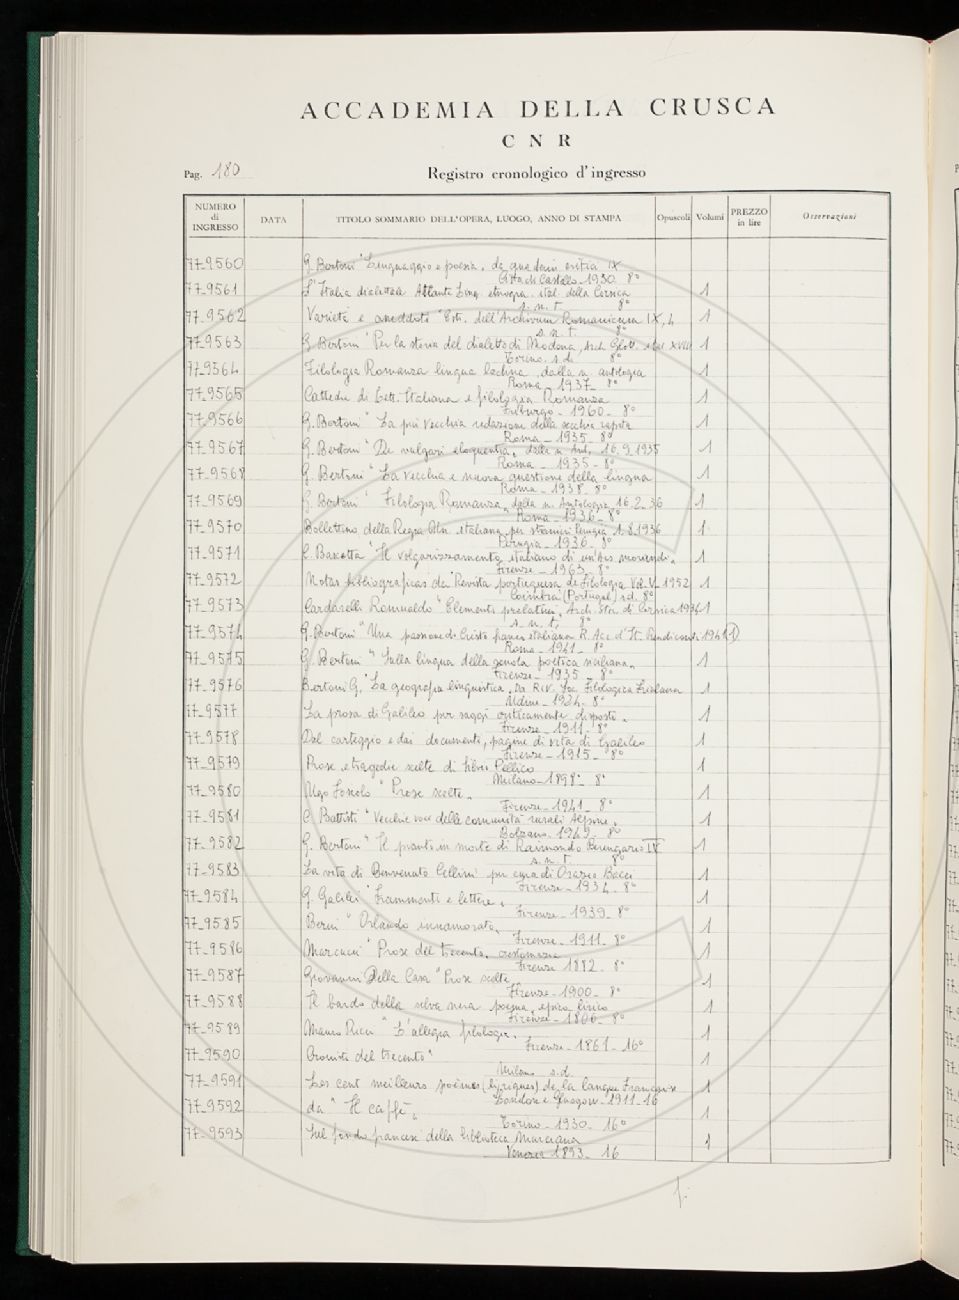 ACCADEMIA DELLA CRUSCA
C N R
Pag. 180
Registro cronologico d'ingresso
NUMERO di INGRESSO DATA TITOLO SOMMARIO DELL'OPERA, LUOGO, ANNO DI STAMPA Opuscoli Volumi PREZZO in lire Osservazioni
77-9560 G. Bertoni "Linguaggio e poesia,
Città di Castello 1930 8°
77-9561 L'Italia dialettale Atlante Ling. etnogr. ital. della Corsica 1
s. n. t. 8°
77-9562 Varietà e aneddoti" Estr. dell'Archivum Romanicum IX, 4 1
s. n. t. 8°
77-9563 G. Bertoni "Per la storia del dialetto di Modena, Arch. Glott. ital XVII 1
Torino. s.d. 8°
77-9564 Filologia Romanza lingua ladina, dalla n. antologia 1
Roma - 1937 - 8°
77-9565 Cattedre di Lett. Italiana e filologia Romanza 1
Friburgo - 1960 - 8°
77-9566 G. Bertoni "La più vecchia redazione della secchia rapita 1
Roma - 1935 - 8°
77-9567 G. Bertoni "De vulgari eloquentia, dalla n. Ant. 16.9.1935 1
Roma - 1935 - 8°
77-9568 G. Bertoni "La vecchia e nuova questione della lingua 1
Roma - 1938 - 8°
77-9569 G. Bertoni "Filologia Romanza, dalla n. Antologia, 16.2.36 1
Roma - 1936 - 8°
77-9570 Bollettino della Regia Un. italiana per stranieri Perugia 1.8.1936 1
Perugia - 1936 - 8°
77-9571 "Il volgarizzamento italiano di un'Ars moriendi" 1
Firenze - 1963 - 8°
77-9572 Notas bibliograficas da "Revista portuguesa de Filologia Vol. V - 1952 1
Coimbra (Portugal) s.d. 8°
77-9573 Romualdo "Elementi prelatini, Arch. Stor. di Corsica 1934 1
s. n. t. 8°
77-9574 G. Bertoni "Una passione di Cristo franco italiana R. Acc. d'It. Rendiconti 1941 1
Roma - 1941 - 8°
77-9575 G. Bertoni "Sulla lingua della scuola poetica siciliana" 1
Firenze - 1935 - 8°
77-9576 Bertoni G. "La geografia linguistica, Da Riv. Soc. Filologica Friulana 1
Udine - 1924 - 8°
77-9577 La prosa di Galileo per saggi criticamente disposti 1
Firenze - 1911 - 8°
77-9578 Dal carteggio e dai documenti, pagine di vita di Galileo 1
Firenze - 1915 - 8°
77-9579 Prose e tragedie scelte di Silvio Pellico 1
Milano - 1898 - 8°
77-9580 Ugo Foscolo "Prose scelte" 1
Firenze - 1941 - 8°
77-9581 C. Battisti "Vecchie voci delle comunità rurali Alpine" 1
Bolzano - 1949 - 8°
77-9582 G. Bertoni "Il pianto in morte di Raimondo Berengario IV 1
s. n. t. 8°
77-9583 La vita di Benvenuto Cellini per cura di Orazio Bacci 1
Firenze - 1934 - 8°
77-9584 G. Galilei "Frammenti e lettere" 1
Firenze - 1939 - 8°
77-9585 Berni "Orlando innamorato" 1
Firenze - 1911 - 8°
77-9586 Marcucci "Prose del trecento, crestomazia 1
Firenze 1882 - 8°
77-9587 Giovanni Della Casa "Prose scelte" 1
Firenze - 1900 - 8°
77-9588 Il bardo della selva nera poema epico lirico 1
Firenze - 1806 - 8°
77-9589 Mauro Ricci "L'allegra filologia" 1
Firenze - 1861 - 16°
77-9590 Cronisti del trecento" 1
Milano s.d.
77-9591 Les cent meilleurs poèmes (lyriques) de la langue Française 1
Londres e Glasgow - 1911 - 16
77-9592 da "Il caffè" 1
Torino - 1930 - 16°
77-9593 Sul fondo francese della biblioteca Marciana 1
Venezia 1893 - 16